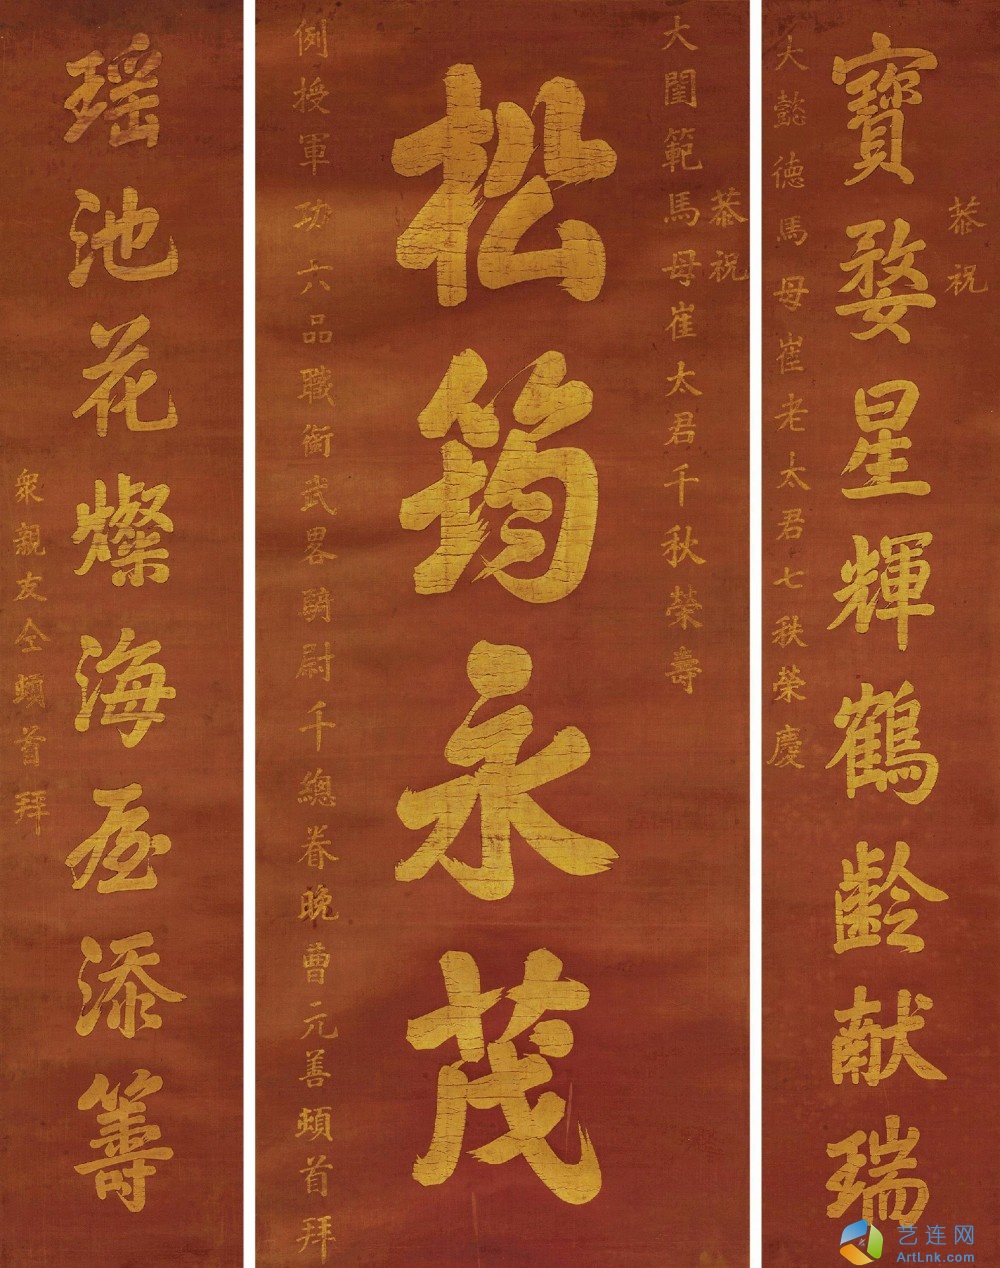 恭祝
寶婺星輝鶴齡献瑞
大懿德馬母崔老太君七秩榮慶
恭祝
大閨範馬母崔太君千秋榮壽
松筠永茂
例授軍功六品職銜武畧騎尉千總眷晚曹元善頓首拜
瑶池花燦海屋添籌
衆親友仝頓首拜
艺连网
ArtLnk.com